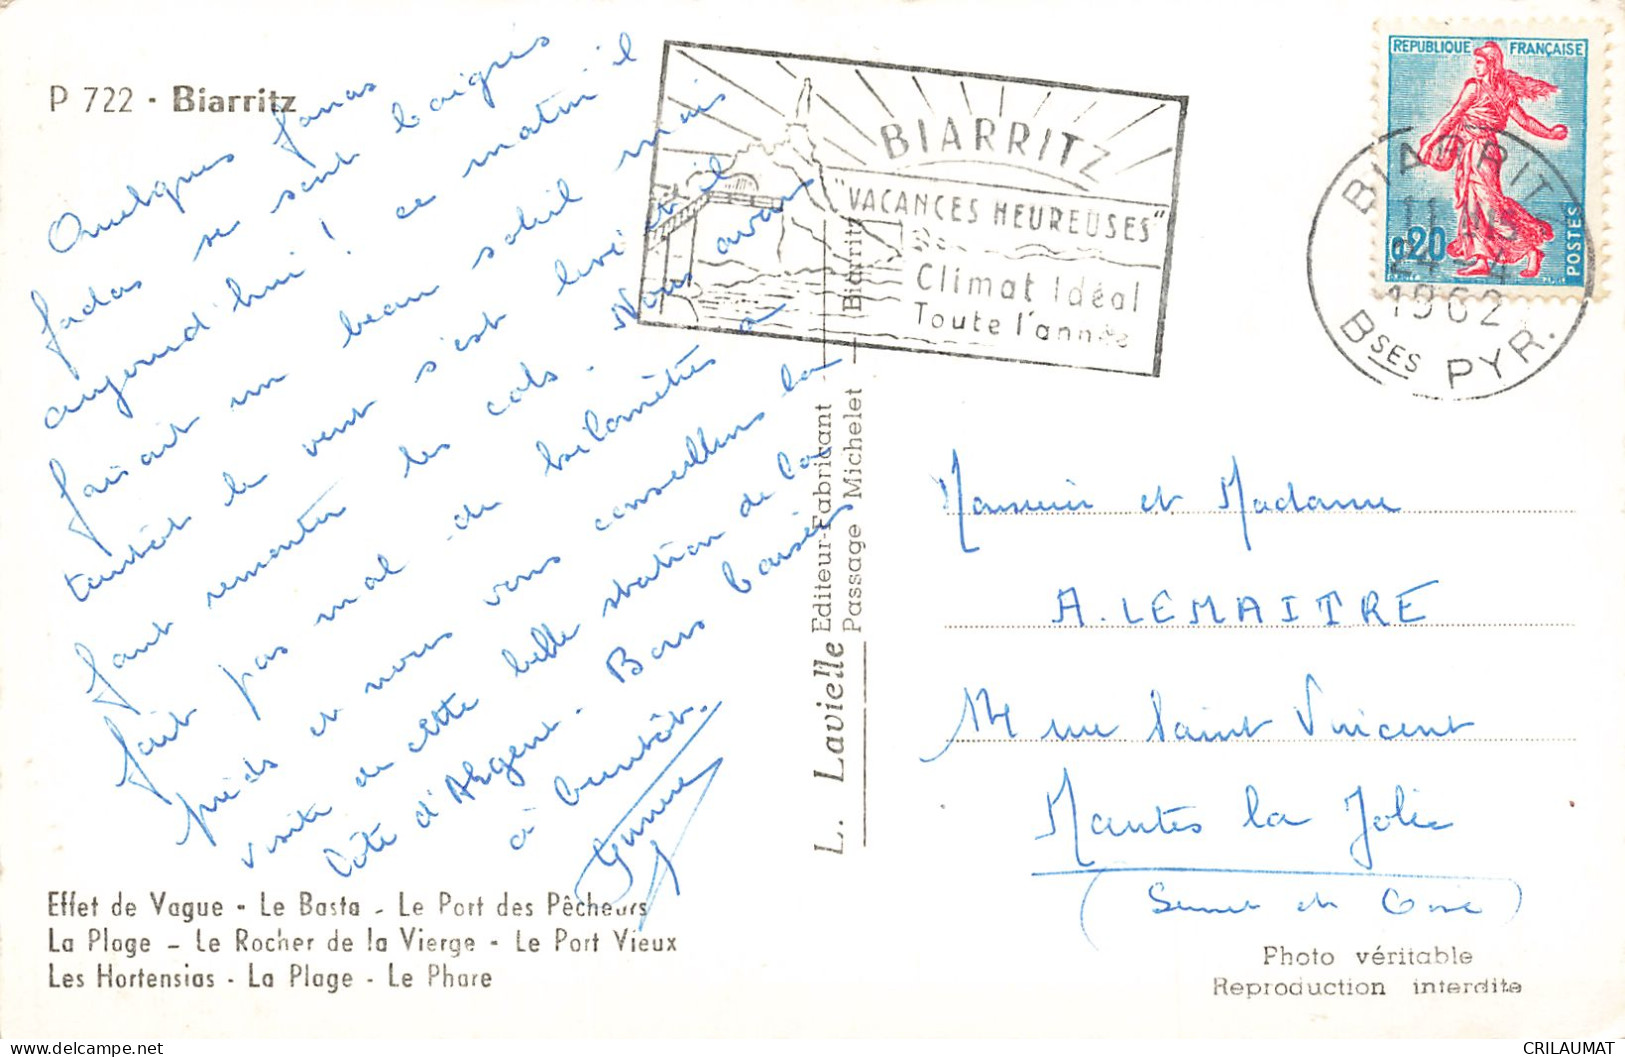 P 722 - Biarritz
Quelques fanas
fadas se sont baignés
aujourd'hui ! ce matin il
faisait un beau soleil mais
tantôt le vent s'est levé et il
faut remonter les cols. Nous avons
fait pas mal de kilomètres à
pieds et nous vous conseillons la
visite de cette belle station de la
Côte d'Argent. Bons baisers
à bientôt.
BIARRITZ
"VACANCES HEUREUSES"
Climat Idéal
Toute l'année
REPUBLIQUE FRANÇAISE
0,20
POSTES
BIARRITZ
11 H15
24 - 4
1962
BSES PYR.
L. Lavielle Editeur-Fabricant
Passage Michelet — Biarritz
Monsieur et Madame
A. LEMAITRE
14 rue Saint Vincent
Mantes la Jolie
(Seine et Oise)
Effet de Vague - Le Basta - Le Port des Pêcheurs
La Plage - Le Rocher de la Vierge - Le Port Vieux
Les Hortensias - La Plage - Le Phare
Photo véritable
Reproduction interdite
www.delcampe.net
CRILAUMAT